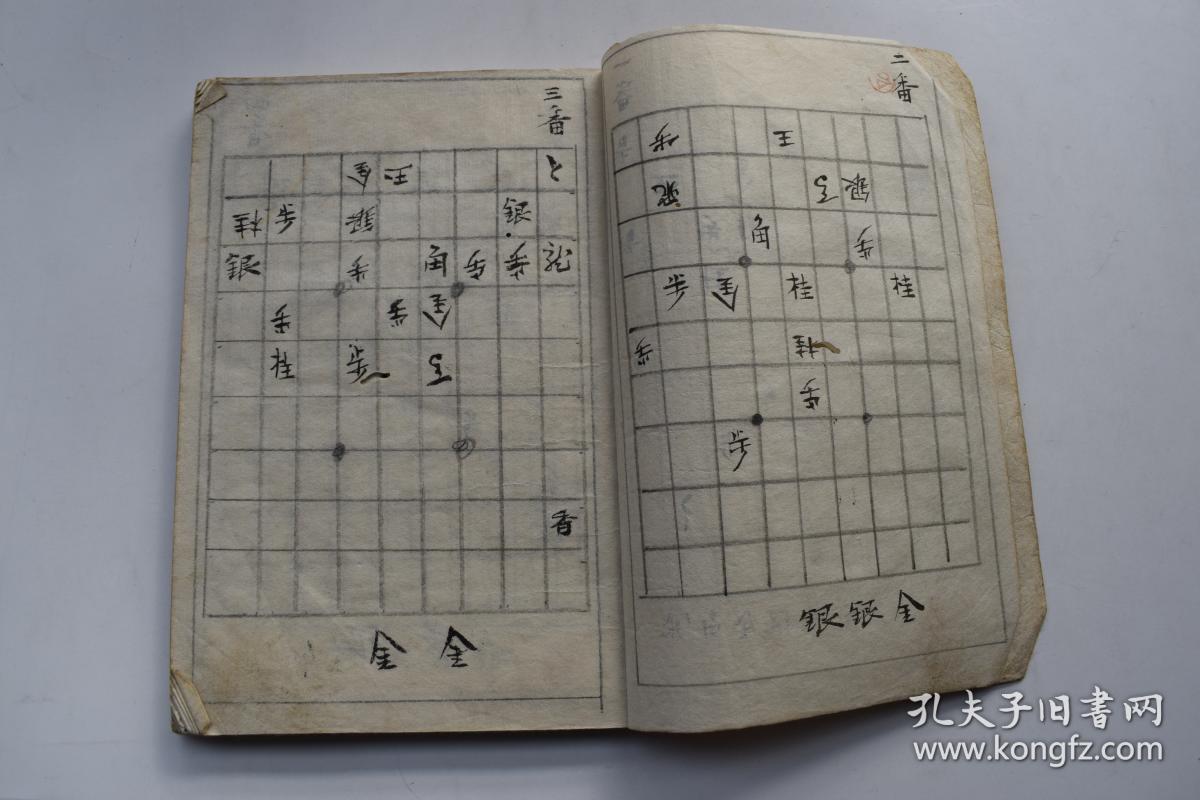 二番
歩 王
飛 銀 了
角 歩
歩 金 桂 桂
歩 桂
歩
歩
銀 銀 金
三番
金 玉 と
桂 歩 銀 銀
銀 歩 角 歩 歩
歩 歩 金
桂 歩 了
香
金 金
孔夫子旧書网
www.kongfz.com